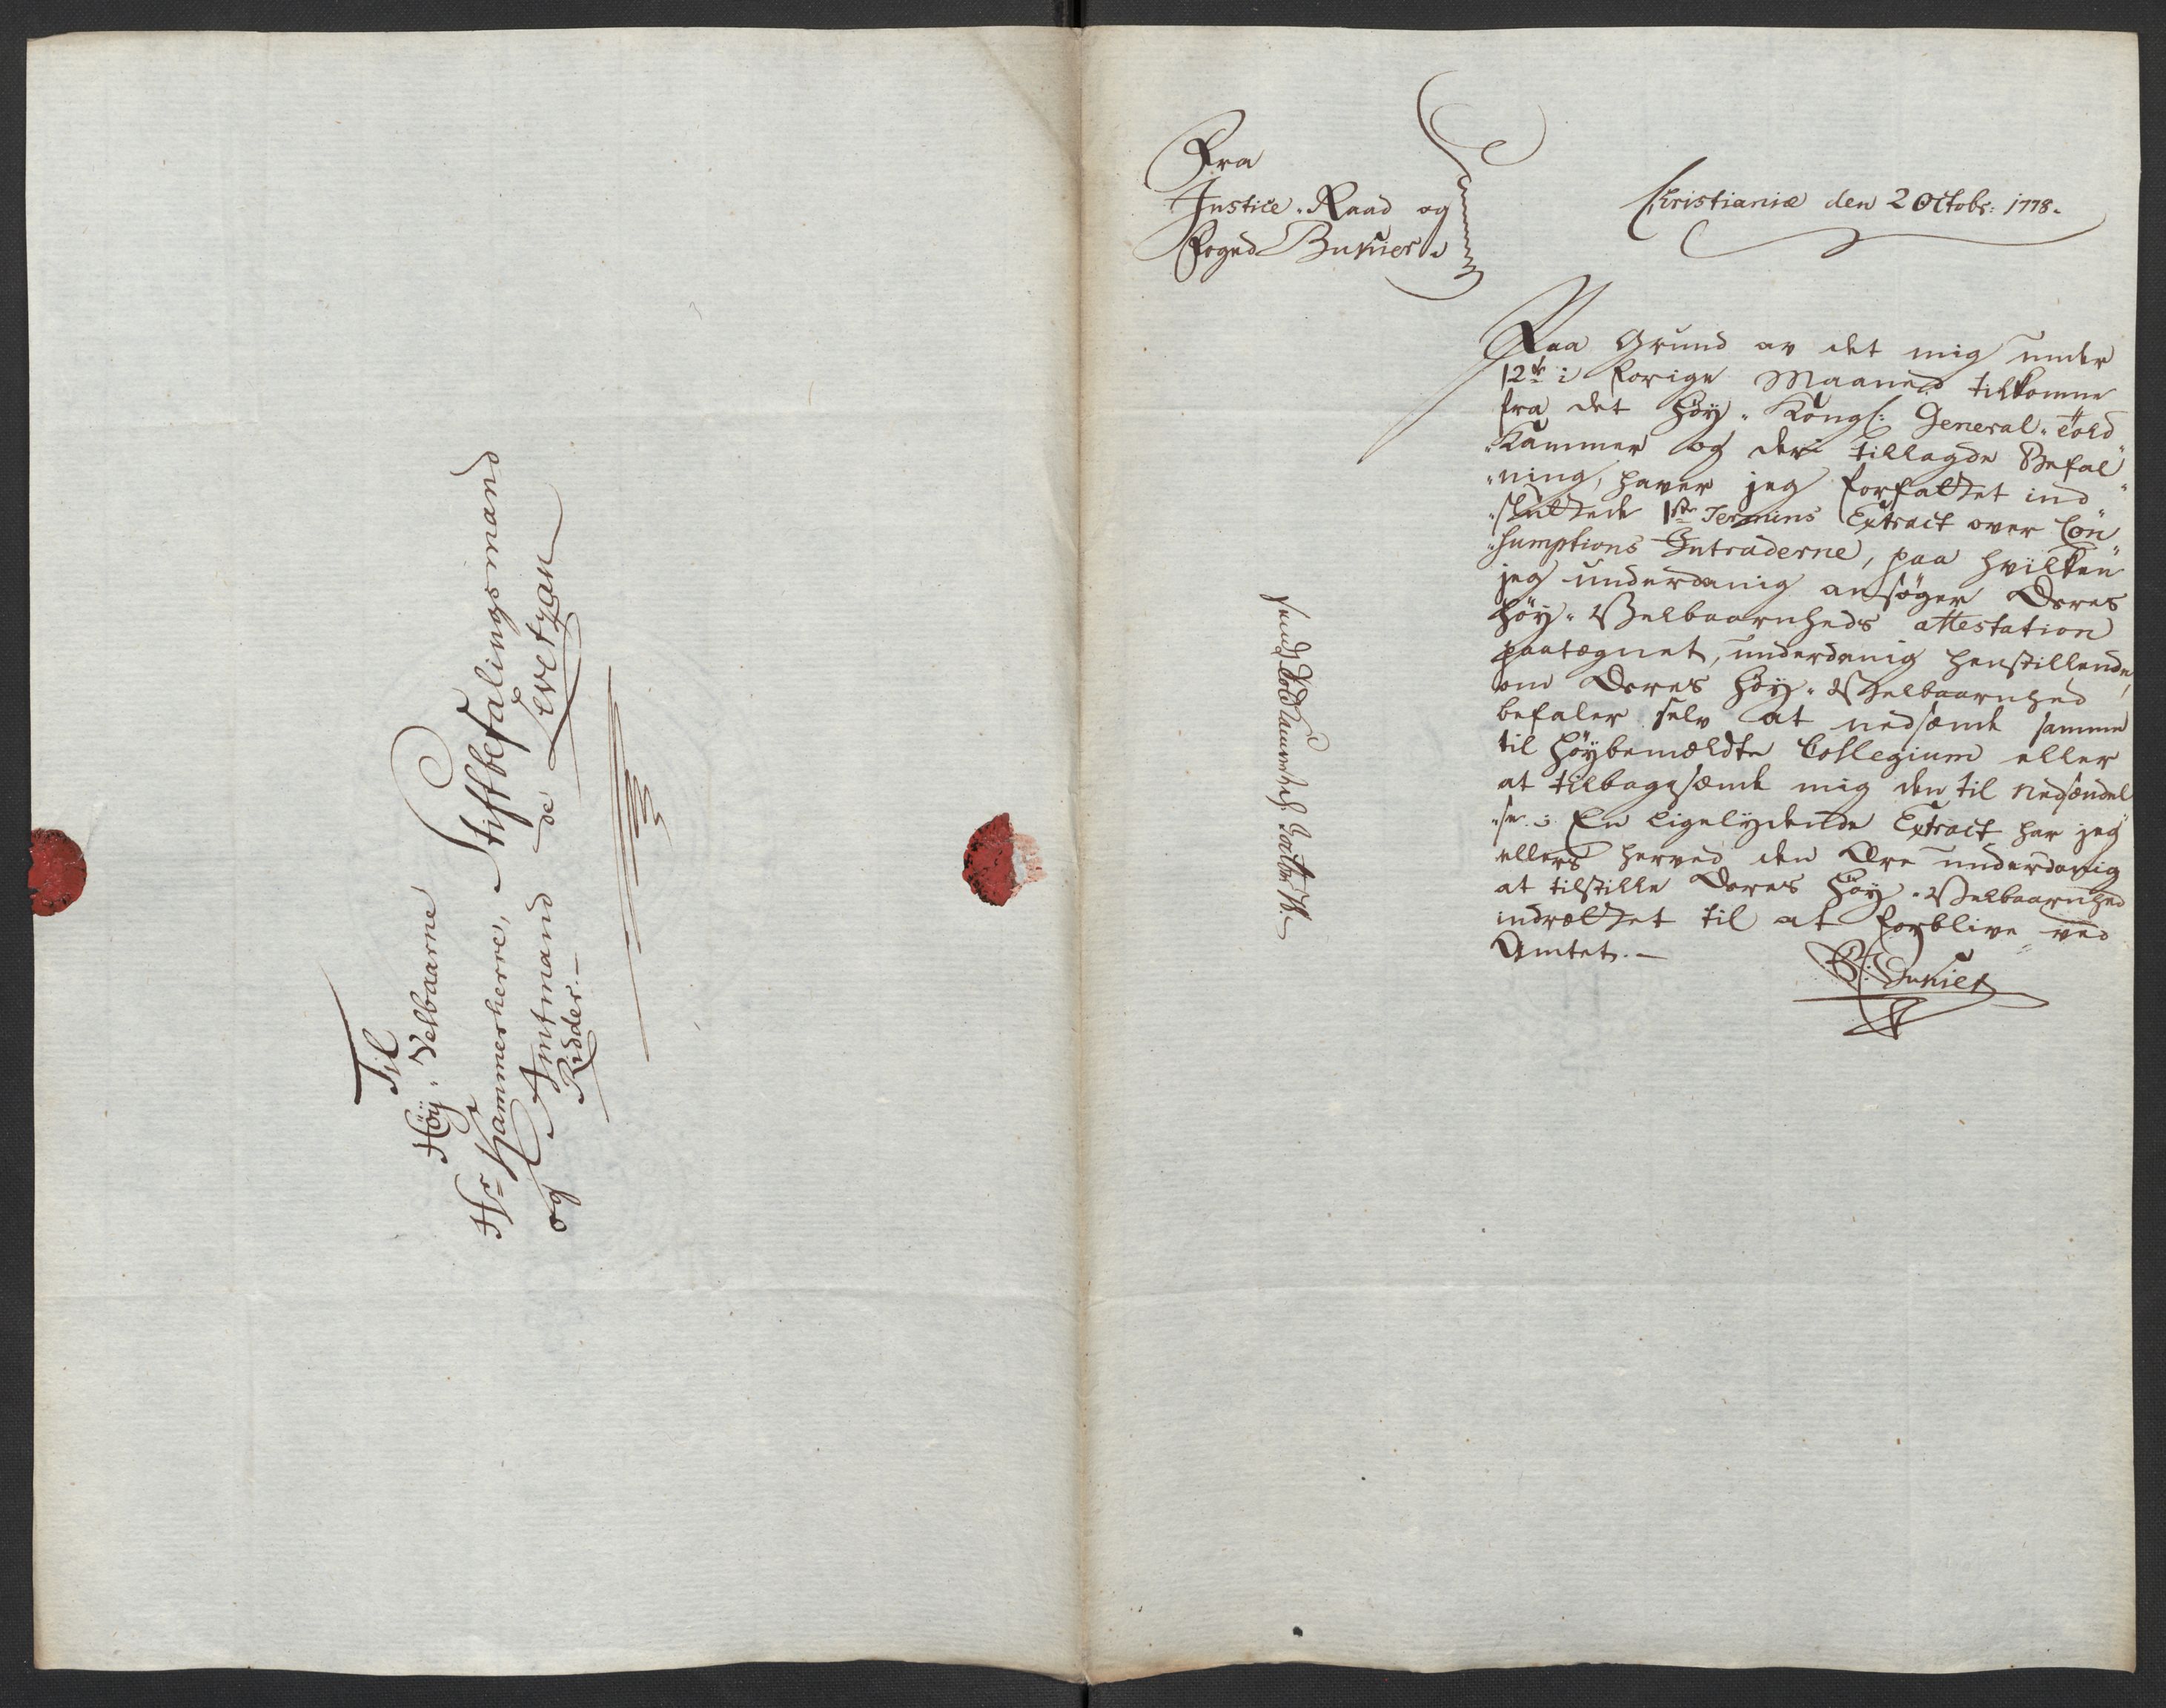 Til
Høy-Velbaarne
Hr. Kammerherre, Stiftbefalingsmand
og Amtmand de Levetzau
Ridder.-
Fra
Justice-Raad og
Foged
Christiania den 2 Octobr: 1778.
Paa Grund av det mig under
12te i forige Maaned tilkomne
fra det Høy-Kongl: General-Told
"Kammer og der tillagde Befal"
"ning, haver jeg forfattet ind"
"sluttede 1ste Termins Extract over Con"
"sumptions Intraderne, paa hvilken
jeg underdanig ansøger Deres
Høy-Velbaarnheds attestation
paategnet, underdanig henstillende,
om Deres Høy-Velbaarnhed
befaler selv at nedsænde samme
til Høybemeldte Collegium eller
at tilbagesænde mig den til Nedsændel
"se. En ligelydende Extract har jeg
ellers herved den Ære underdanig
at tilstille Deres Høy-Velbaarnhed
indrættet til at forblive ved
Amtet.-